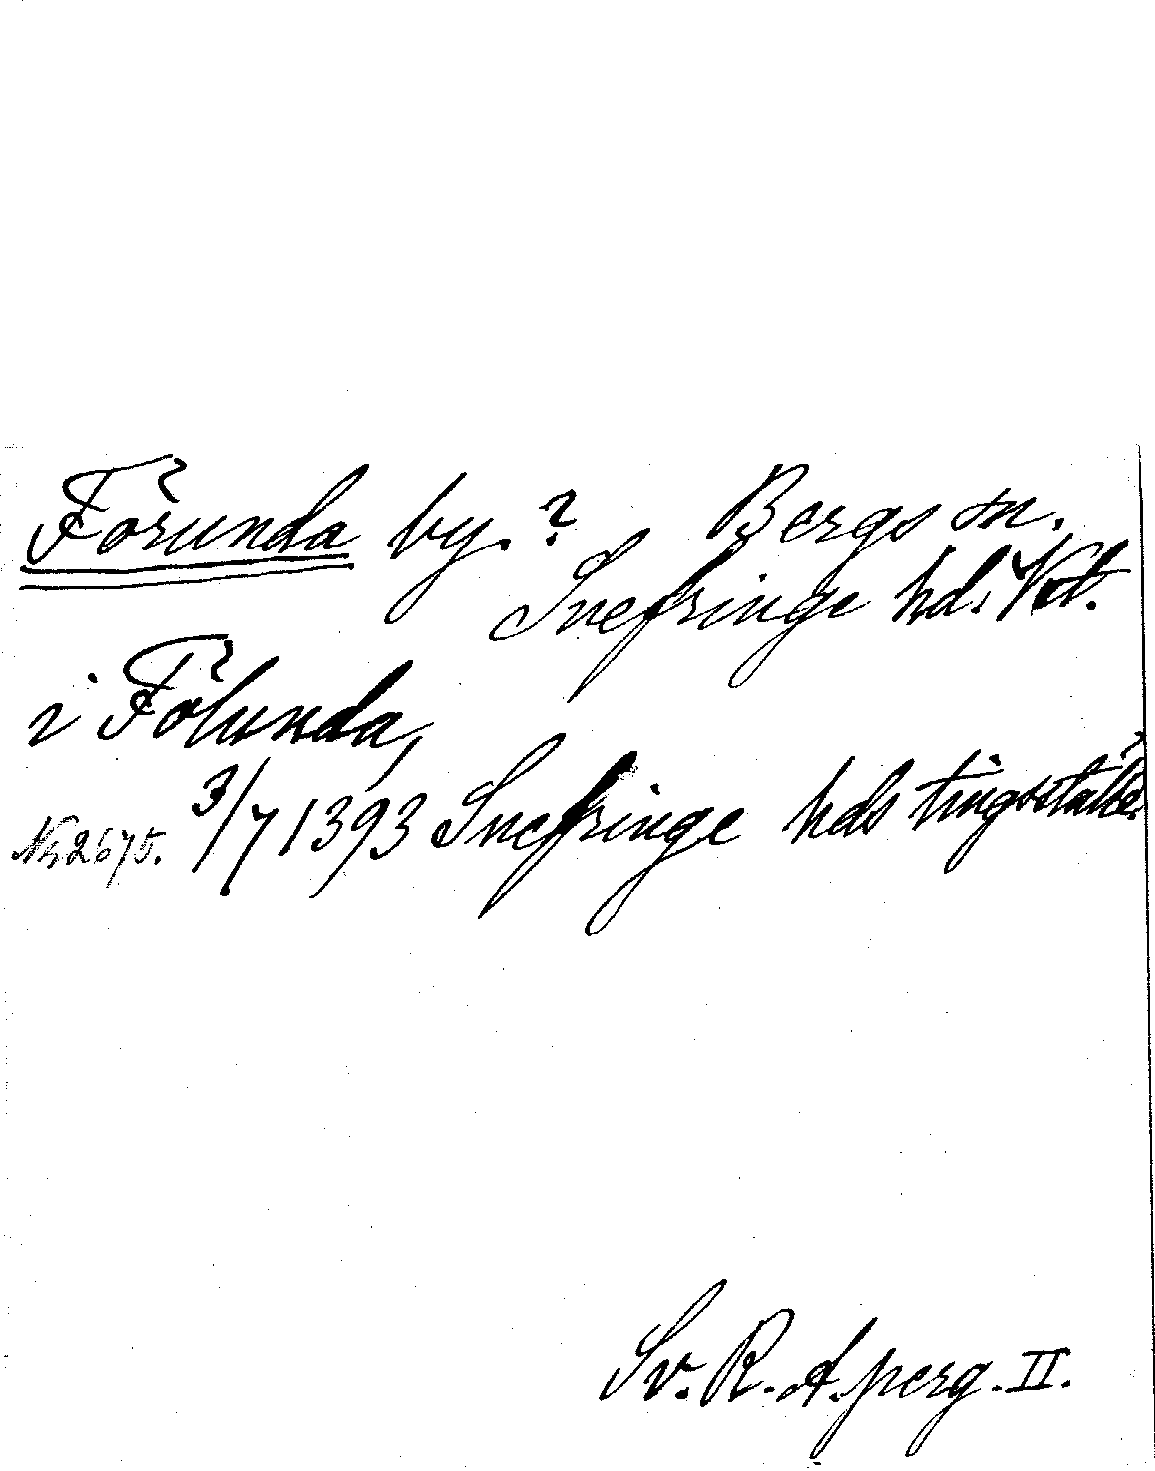 Forunda by.? Bergs sn.
Snefringe hd. Vstl.
i Fölunda,
Nr 2675. 3/7 1393 Snefringe hds tingsställe.
Sv. R. A. perg. II.